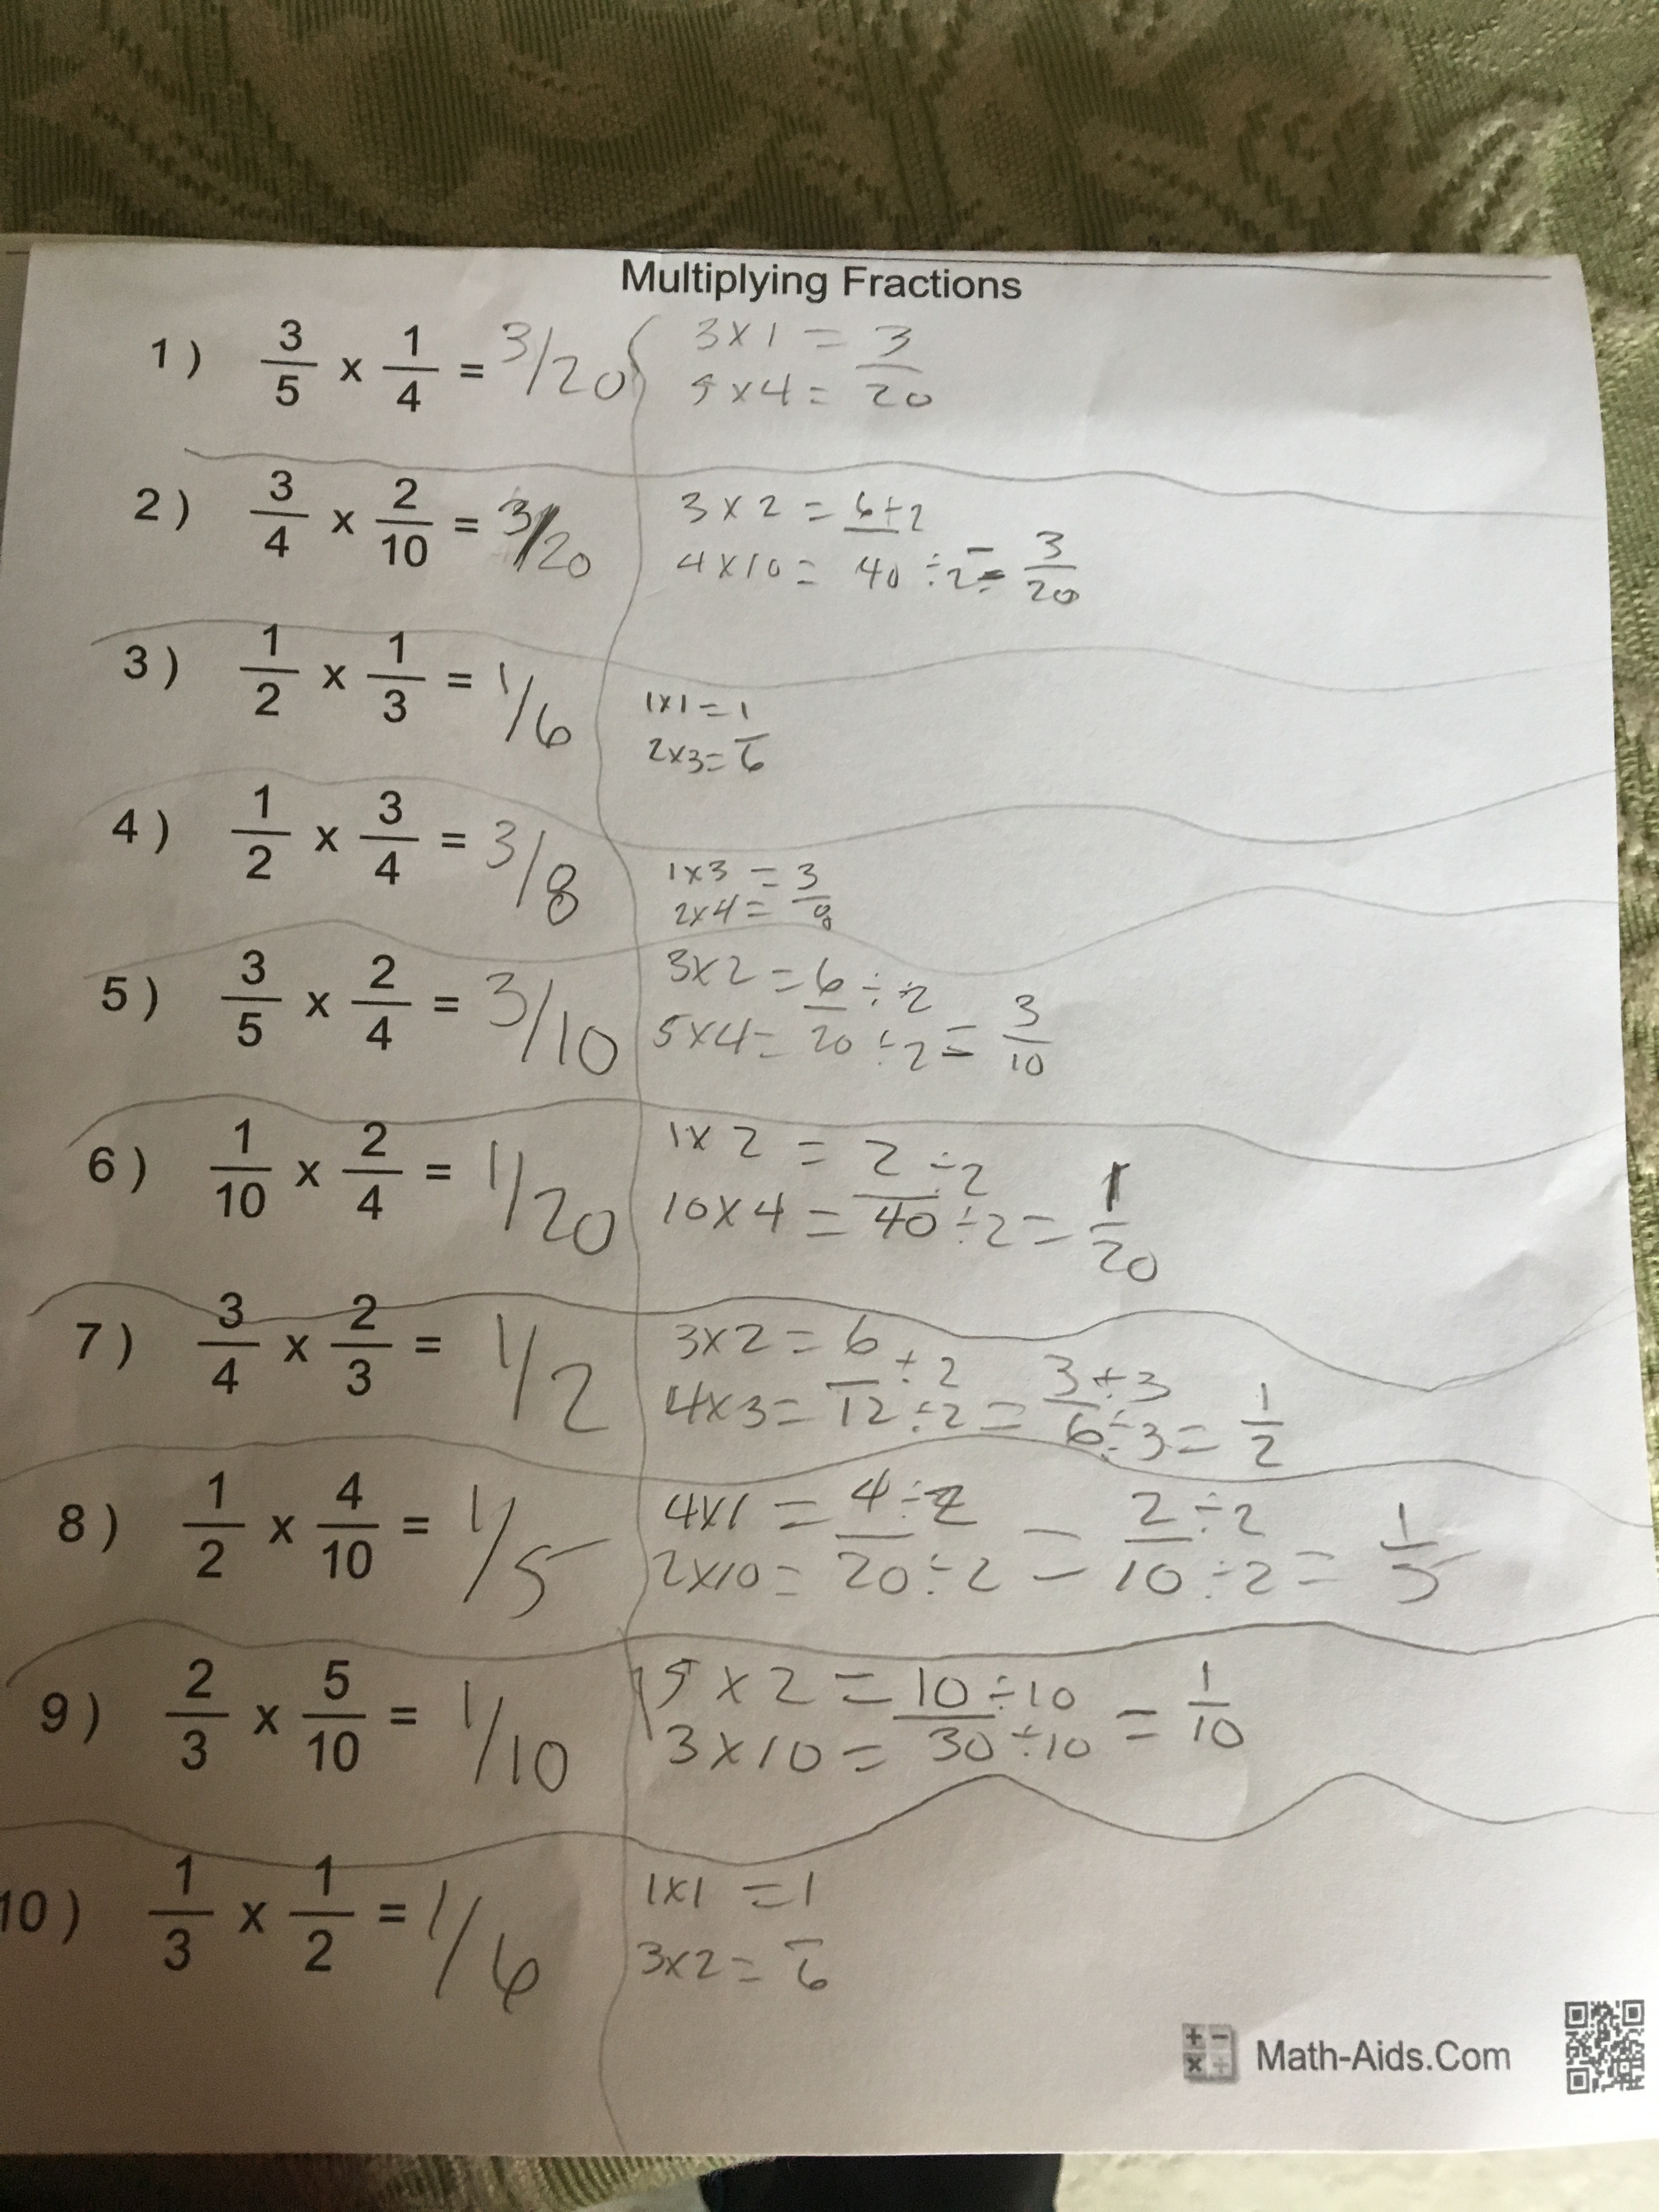 Multiplying Fractions
1) 3/5 x 1/4 = 3/20 3x1 = 3
5x4 = 20
2) 3/4 x 2/10 = 3/20 3x2 = 6÷2
4x10 = 40÷2 = 3/20
3) 1/2 x 1/3 = 1/6 1x1=1
2x3=6
4) 1/2 x 3/4 = 3/8 1x3 = 3
2x4 = 8
5) 3/5 x 2/4 = 3/10 3x2 = 6÷2
5x4 = 20÷2 = 3/10
6) 1/10 x 2/4 = 1/20 1x2 = 2÷2
10x4 = 40÷2 = 1/20
7) 3/4 x 2/3 = 1/2 3x2 = 6÷2 3÷3
4x3 = 12÷2 = 6÷3 = 1/2
8) 1/2 x 4/10 = 1/5 4x1 = 4÷2 = 2÷2
2x10 = 20÷2 = 10÷2 = 1/5
9) 2/3 x 5/10 = 1/10 5x2 = 10÷10
3x10 = 30÷10 = 1/10
10) 1/3 x 1/2 = 1/6 1x1 = 1
3x2 = 6
Math-Aids.Com